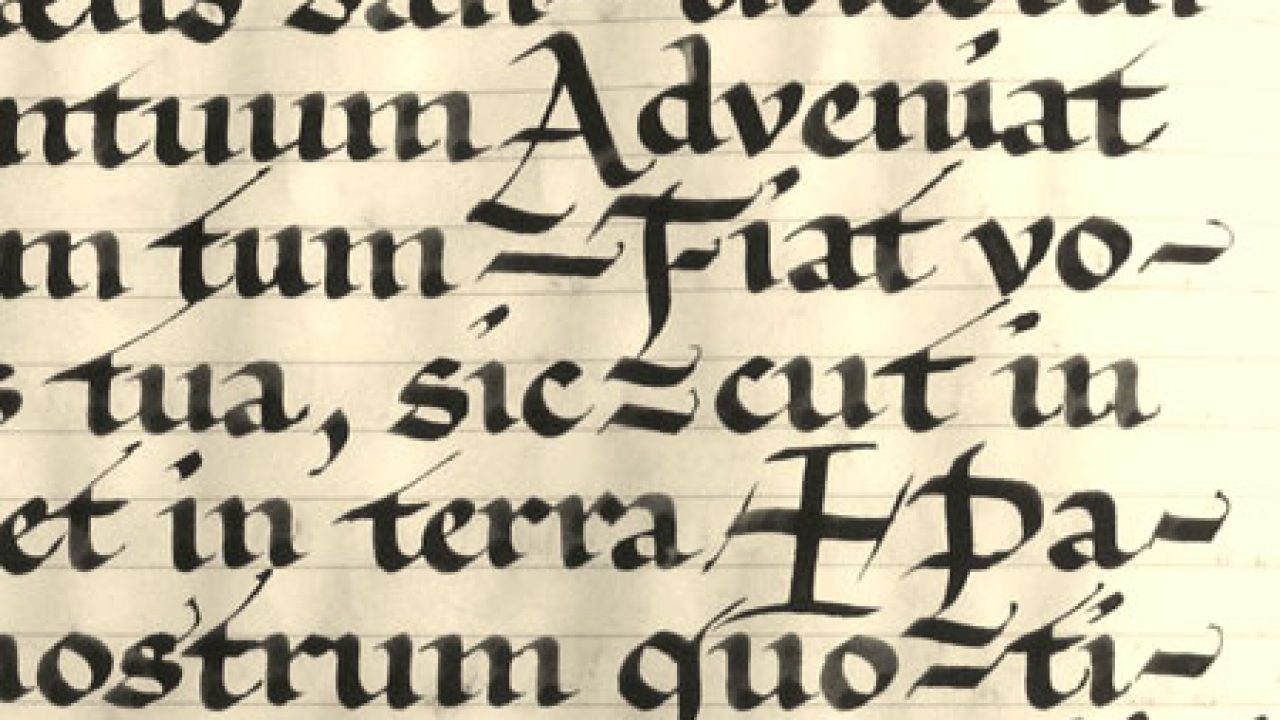 ntuum Adveniat
m tum - Fiat vo-
s tua, sic=cut in
et in terra ✠ Pa-
nostrum quo=ti-